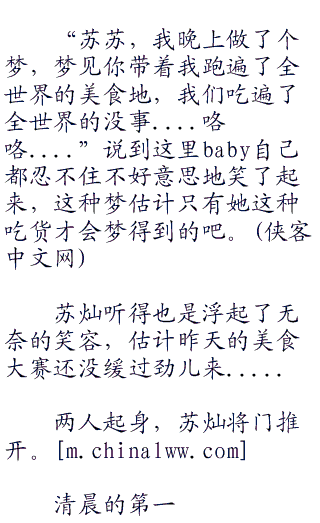 “苏苏，我晚上做了个
梦，梦见你带着我跑遍了全
世界的美食地，我们吃遍了
全世界的没事....咯
咯....”说到这里baby自己
都忍不住不好意思地笑了起
来，这种梦估计只有她这种
吃货才会梦得到的吧。(侠客
中文网)
苏灿听得也是浮起了无
奈的笑容，估计昨天的美食
大赛还没缓过劲儿来.....
两人起身，苏灿将门推
开。[m.china1ww.com]
清晨的第一